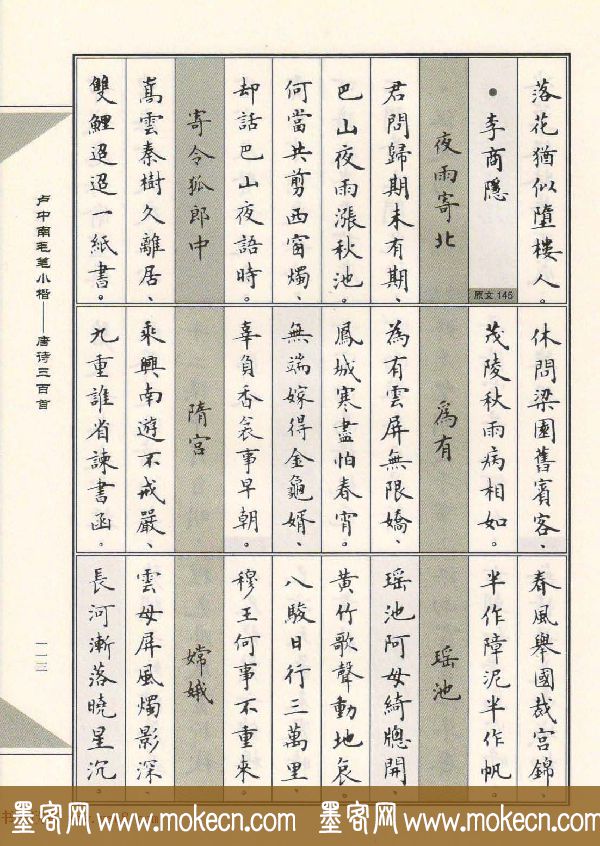 落花猶似墮樓人。
●李商隱
原文 146
夜雨寄北
君問歸期未有期、
巴山夜雨漲秋池。
何當共剪西窗燭、
却話巴山夜語時。
寄令狐郎中
嵩雲秦樹久離居、
雙鯉迢迢一紙書。
休問梁園舊賓客、
茂陵秋雨病相如。
為有
為有雲屏無限嬌、
鳳城寒盡怕春宵。
無端嫁得金龜婿、
辜負香衾事早朝。
隋宮
乘興南遊不戒嚴、
九重誰省諫書函。
春風舉國裁宮錦、
半作障泥半作帆。
瑤池
瑤池阿母綺牕開、
黃竹歌聲動地哀。
八駿日行三萬里、
穆王何事不重來。
嫦娥
雲母屏風燭影深、
長河漸落曉星沉。
卢中南毛笔小楷——唐诗三百首
一一三
墨客网 www.mokecn.com 墨客网 www.mokecn.com